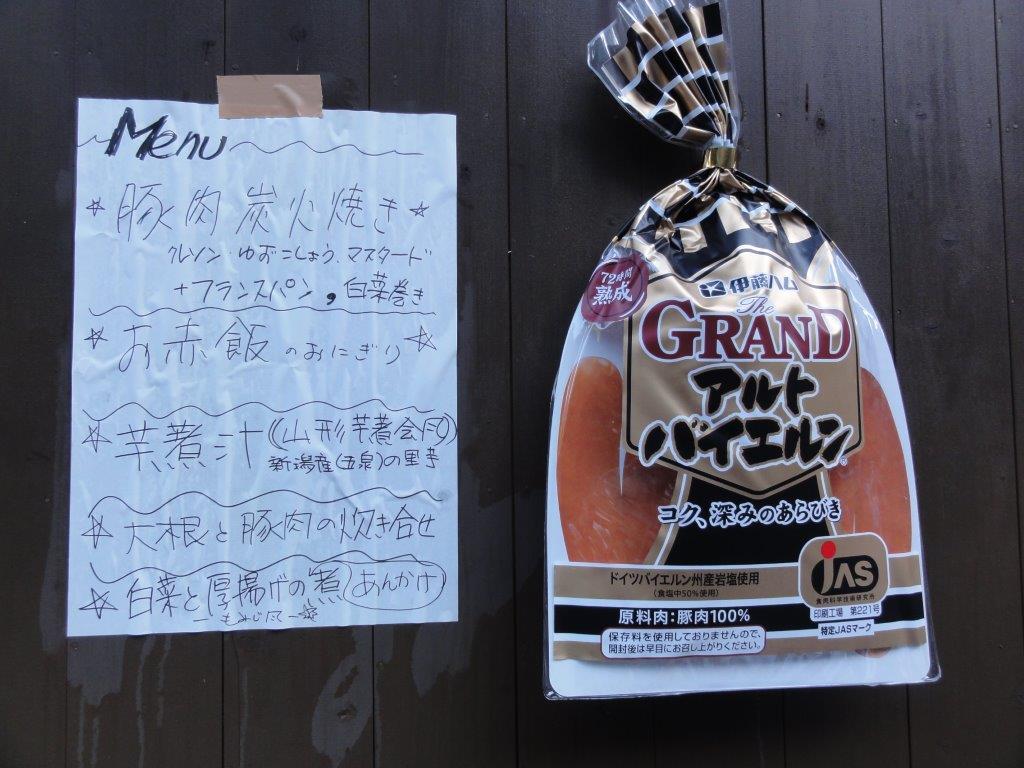 Menu
☆豚肉炭火焼き☆
クレソン・ゆずこしょう、マスタード
+フランスパン,白菜巻き
☆お赤飯のおにぎり☆
☆芋煮汁(山形芋煮会風)
新潟産(五泉)の里芋
☆大根と豚肉の炊き合せ
☆白菜と厚揚げの煮(あんかけ)
ー もみじ風 ー☆
72時間
熟成
伊藤ハム
The
GRAND
アルト
バイエルン®
コク、深みのあらびき
ドイツバイエルン州産岩塩使用
(食塩中50%使用)
原料肉:豚肉100%
保存料を使用しておりませんので、
開封後は早目にお召し上がりください。
JAS
食肉科学技術研究所
印刷工場 第221号
特定JASマーク